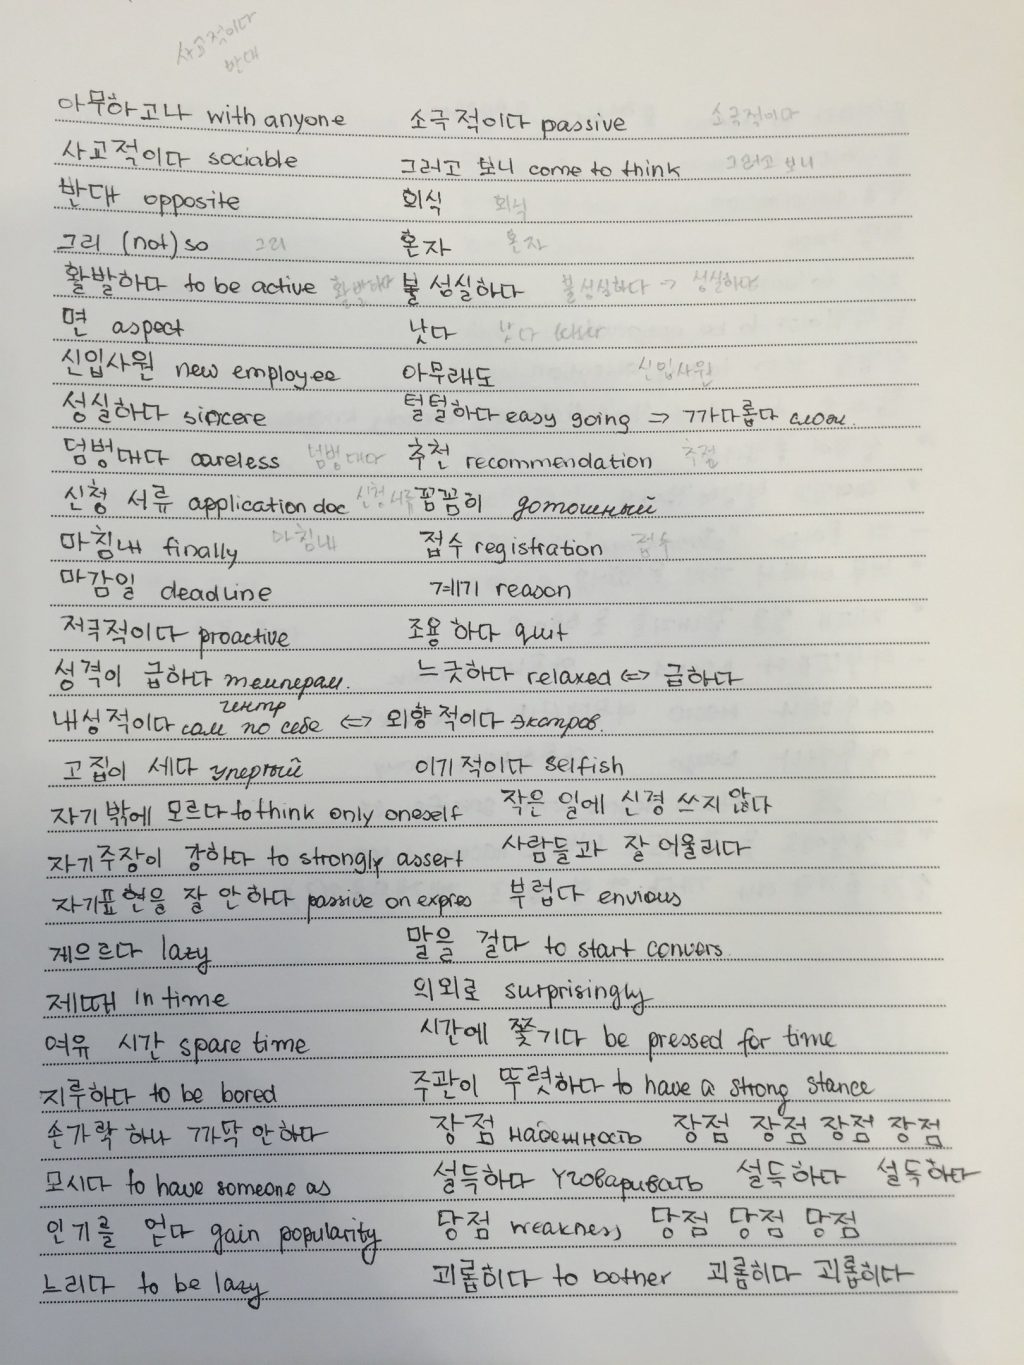 사교적이다
반대
아무하고나 with anyone 소극적이다 passive 소극적이다
사교적이다 sociable 그러고 보니 come to think 그러고 보니
반대 opposite 회식 회식
그리 (not) so 그리 혼자 혼자
활발하다 to be active 활발하다 불성실하다 불성실하다 → 성실하다
면 aspect 낫다 낫다
신입사원 new employee 아무래도 신입사원
성실하다 sincere 털털하다 easy going ⇒ 까다롭다
덤벙대다 careless 덤벙대다 추천 recommendation
신청 서류 application doc 신청서류 꼼꼼히 дотошный
마침내 finally 마침내 접수 registration 접수
마감일 deadline 계기 reason
저극적이다 proactive 조용하다 quit
성격이 급하다 темперам. 느긋하다 relaxed ⇔ 급하다
내성적이다 сам по себе интр ⇔ 외향적이다 экстров.
고집이 세다 упертый 이기적이다 selfish
자기밖에 모르다 to think only oneself 작은 일에 신경 쓰지 않다
자기주장이 강하다 to strongly assert 사람들과 잘 어울리다
자기표현을 잘 안 하다 passive on expres 부럽다 envious
게으르다 lazy 말을 걸다 to start convers.
제때 in time 의외로 surprisingly
여유 시간 spare time 시간에 쫓기다 be pressed for time
지루하다 to be bored 주관이 뚜렷하다 to have a strong stance
손가락 하나 까딱 안하다 장점 надежность 장점 장점 장점 장점
모시다 to have someone as 설득하다 уговаривать 설득하다 설득하다
인기를 얻다 gain popularity 당점 weakness 당점 당점 당점
느리다 to be lazy 괴롭히다 to bother 괴롭히다 괴롭히다